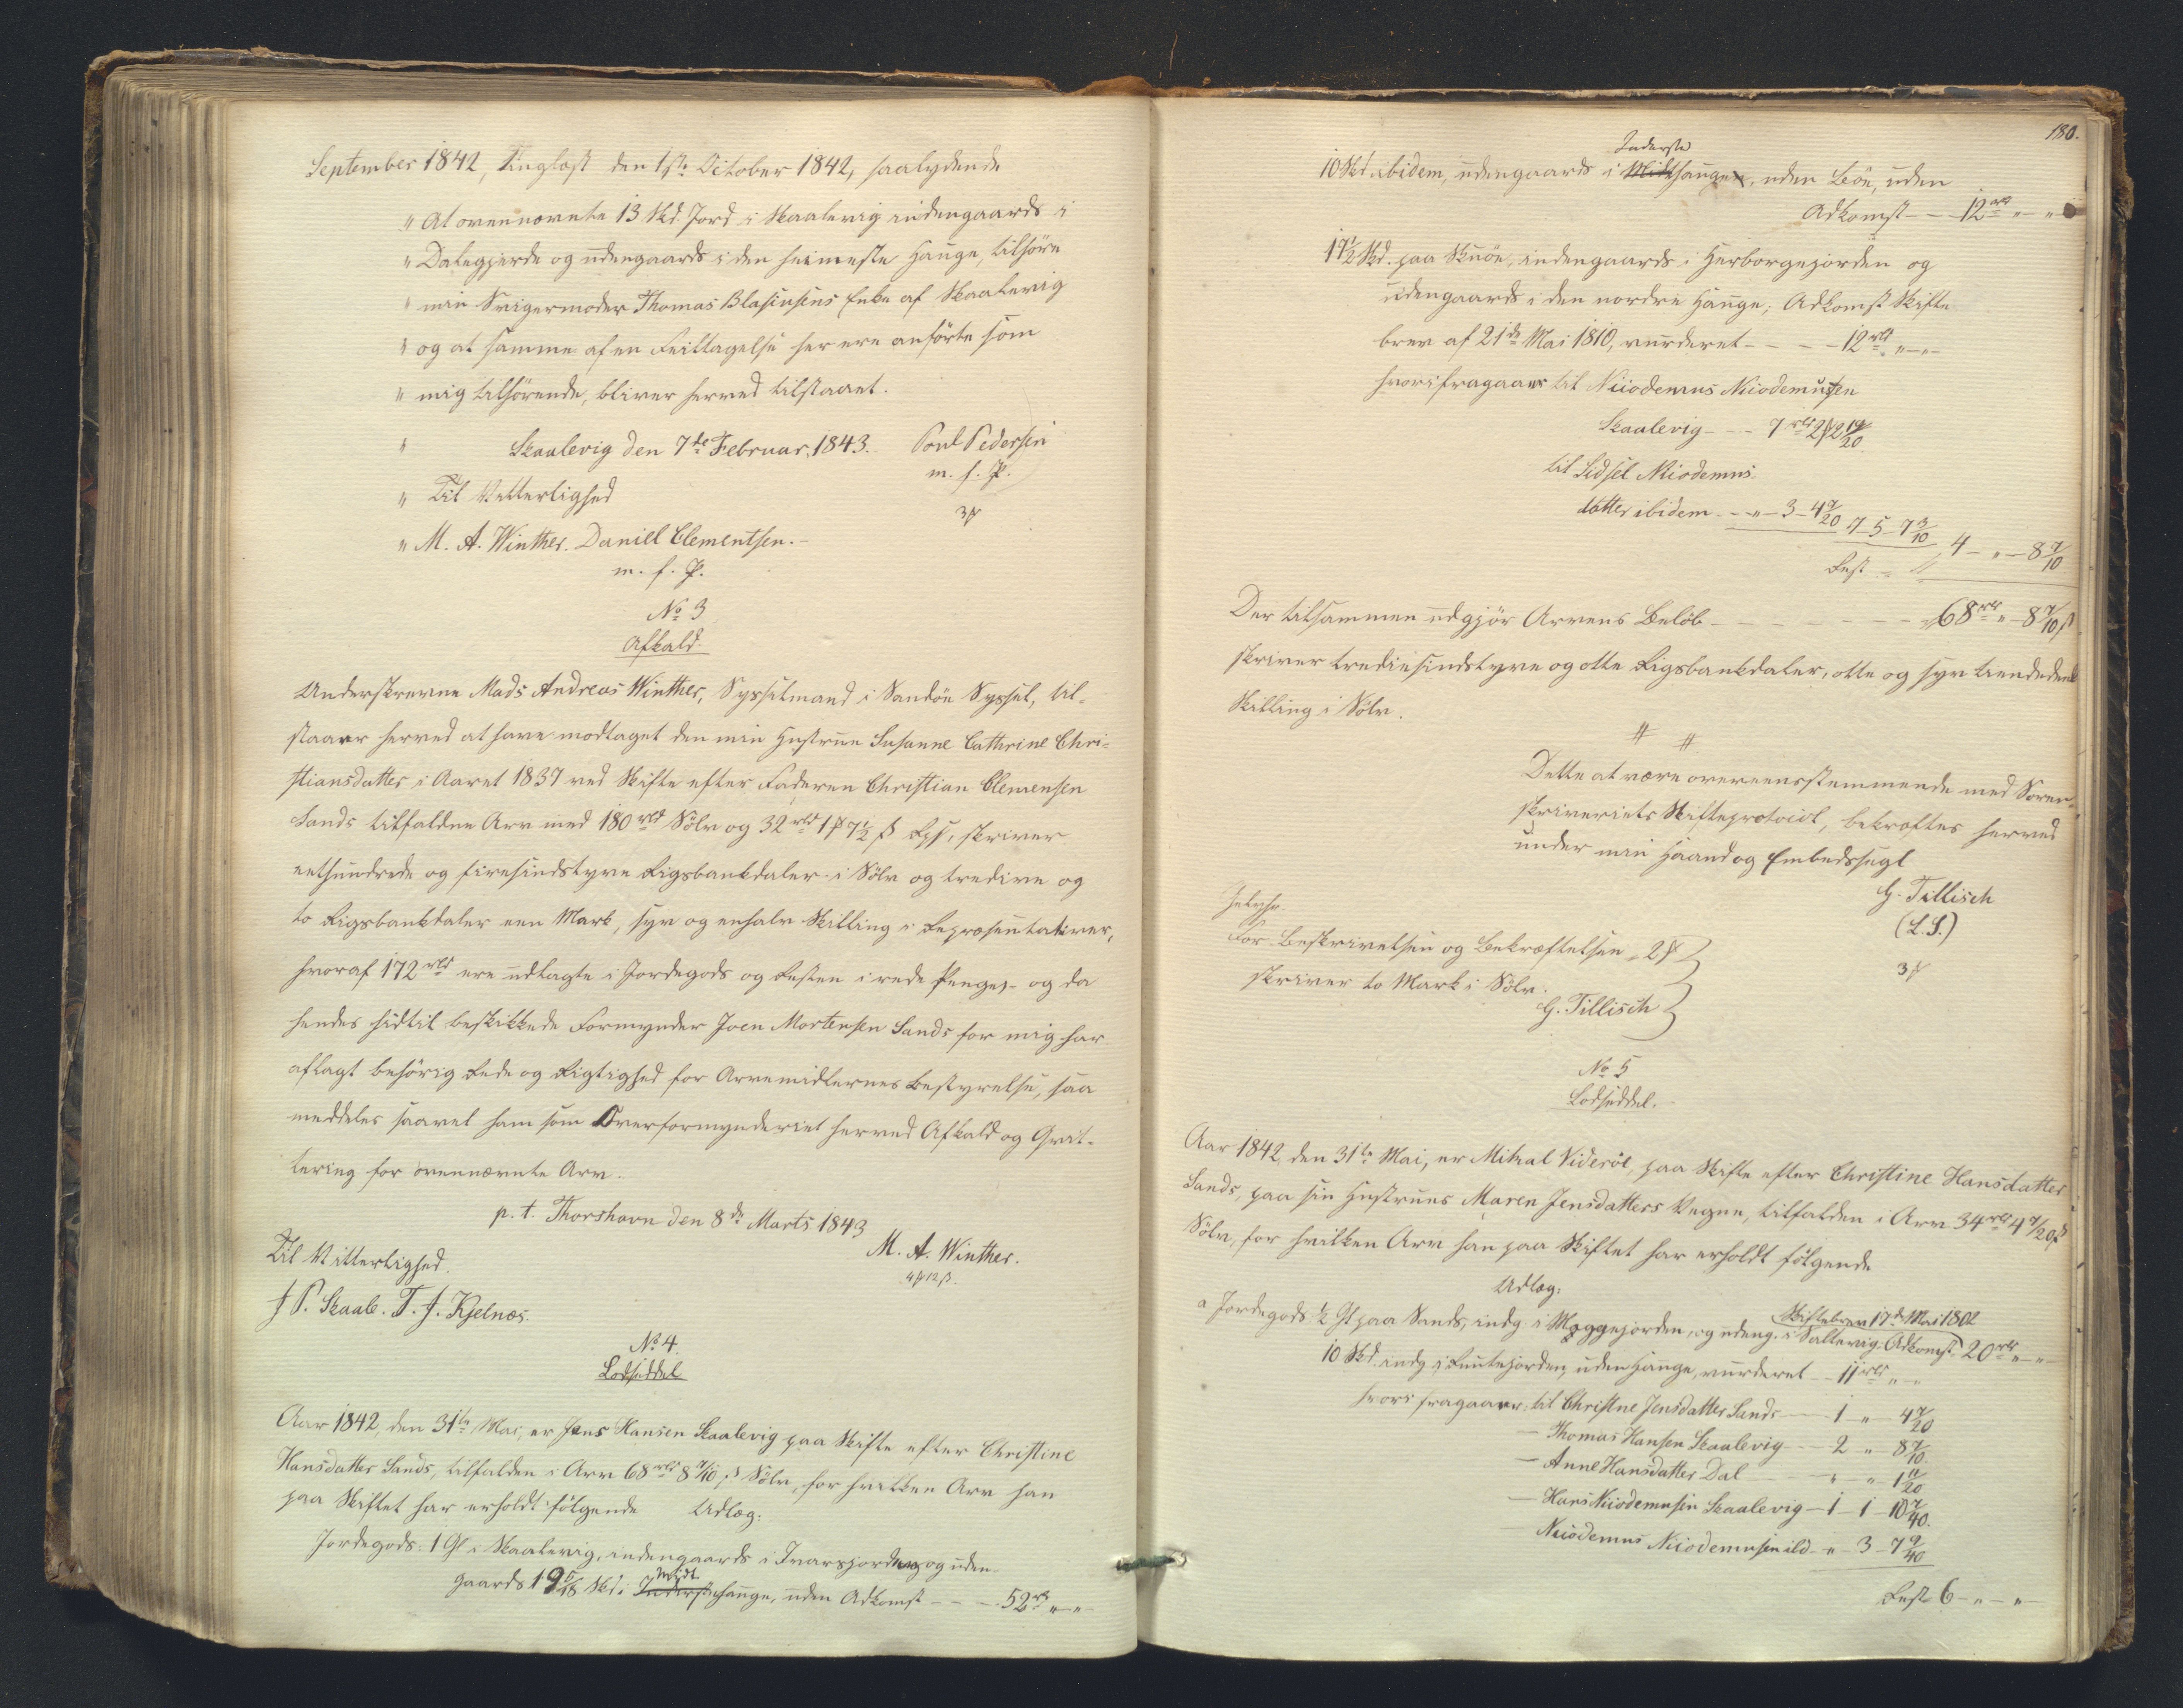 September 1842, Tinglæst den 1ste October 1842, saalydende
" At ovennævnte 13 Skd. Jord i Skaalevig indengaards i
" Dalegjerde og udengaards i den heimeste Hauge, tilhøre
" min Svigermoder Thomas Blasiusens Enke af Skaalevig
" og at samme af en Feiltagelse her ere anførte som
" mig tilhørende, bliver herved tilstaaet.
" Skaalevig den 7de Februar 1843. Poul Pedersen
m. f. P.
" Til Vitterlighed
3 ß
" M. A. Winther. Daniel Clementsen.
m. f. P.
No 3
Afkald
Underskrevne Mads Andreas Winther, Sysselmand i Sandøe Syssel, til-
staaer herved at have modtaget den min Hustrue Susanne Cathrine Chri-
stiansdatter i Aaret 1837 ved Skifte efter Faderen Christian Clemensen
Sands tilfaldne Arv med 180 rbd Sølv og 32 rbd 1 ℳ 7½ ß Rps, skriver
eethundrede og firesindstyve Rigsbankdaler i Sølv og tredive og
to Rigsbankdaler een Mark, syv og enhalv Skilling i Repræsentativer,
hvoraf 172 rbd ere udlagte i Jordegods og Resten i rede Penge, og da
hendes hidtil beskikkede Formynder Joen Mortensen Sands for mig har
aflagt behørig Rede og Rigtighed for Arvemidlernes Bestyrelse, saa
meddeles saavel ham som Overformynderiet herved Afkald og Qvit-
tering for ovennævnte Arv.
p. t. Thorshavn den 8de Marts 1843
Til Vitterlighed. M. A. Winther.
4 ℳ 12 ß.
J P. Skaale. T. J. Kjelnæs.
No 4.
Lodseddel
Aar 1842, den 31te Mai, er Jens Hansen Skaalevig paa Skifte efter Christine
Hansdatter Sands, tilfalden i Arv 68 rbd 8 7/10 ß Sølv, for hvilken Arv han
paa Skiftet har erholdt følgende Udlæg:
Jordegods: 1 Gl i Skaalevig, indengaards i Ivarsjorden og uden-
Midt
gaards 19 5/18 Skd. i Indersthauge, uden Adkomst - - - 52 rbd " - "
180.
Inderste
10 Skd. ibidem, udengaards i Midthaugen, uden Bøe, uden
Adkomst - - 12 rbd " - "
17½ Skd. paa Skuøe, indengaards i Herborgejorden og
udengaards i den nordre Hauge; Adkomst Skifte-
brev af 21de Mai 1810, vurderet - - - - 12 rbd " - "
hvorifragaaer til Niiodemus Niiodemusen
Skaalevig - - - 7 rbd 2 ℳ 2 19/20
til Sidsel Niiodemus-
datter ibidem - - " - 3 - 4 7/20 7 - 5 - 7 3/10
Rest - " 4 - " - 8 7/10
Der tilsammen udgjør Arvens Beløb - - - - - - - 68 rbd " - 8 7/10 ß
skriver trediesindstyve og otte Rigsbankdaler, otte og syv tiendedeel
Skilling i Sølv.
# #
Dette at være overeensstemmende med Soren-
skriveriets Skifteprotocol, bekræftes herved
under min Haand og Embedssegl
Gebyhr. G. Tillisch
For Beskrivelsen og Bekræftelsen 2 ℳ (L.S.)
skriver to Mark i Sølv. 3 ß
G. Tillisch
No 5
Lodseddel.
Aar 1842, den 31te Mai, er Mikal Viderøe, paa Skifte efter Christine Hansdatter
Sands, paa sin Hustrues Maren Jensdatters Vegne, tilfalden i Arv 34 rbd 4 7/20 ß
Sølv, for hvilken Arv han paa Skiftet har erholdt følgende
Udlæg:
Skiftebrev 17de Mai 1802
a Jordegods ½ Gl paa Sands, indg. i Myggejorden, og udeng. i Saltevig, Adkomst 20 rbd " - "
10 Skd. indg i Reutejorden, uden Hauge, vurderet - 11 rbd " - "
hvori fragaaer: til Christine Jensdatter Sands - 1 " 4 7/20
- Thomas Hansen Skaalevig - - 2 " 8 7/10.
- Anne Hansdatter Dal - - " " 1 11/20
- Hans Niiodemusen Skaalevig - 1 - 1 - 10 7/40.
Niiodemus Niiodemusen ibd - " - 3 - 7 9/40
Rest 6 - " - "